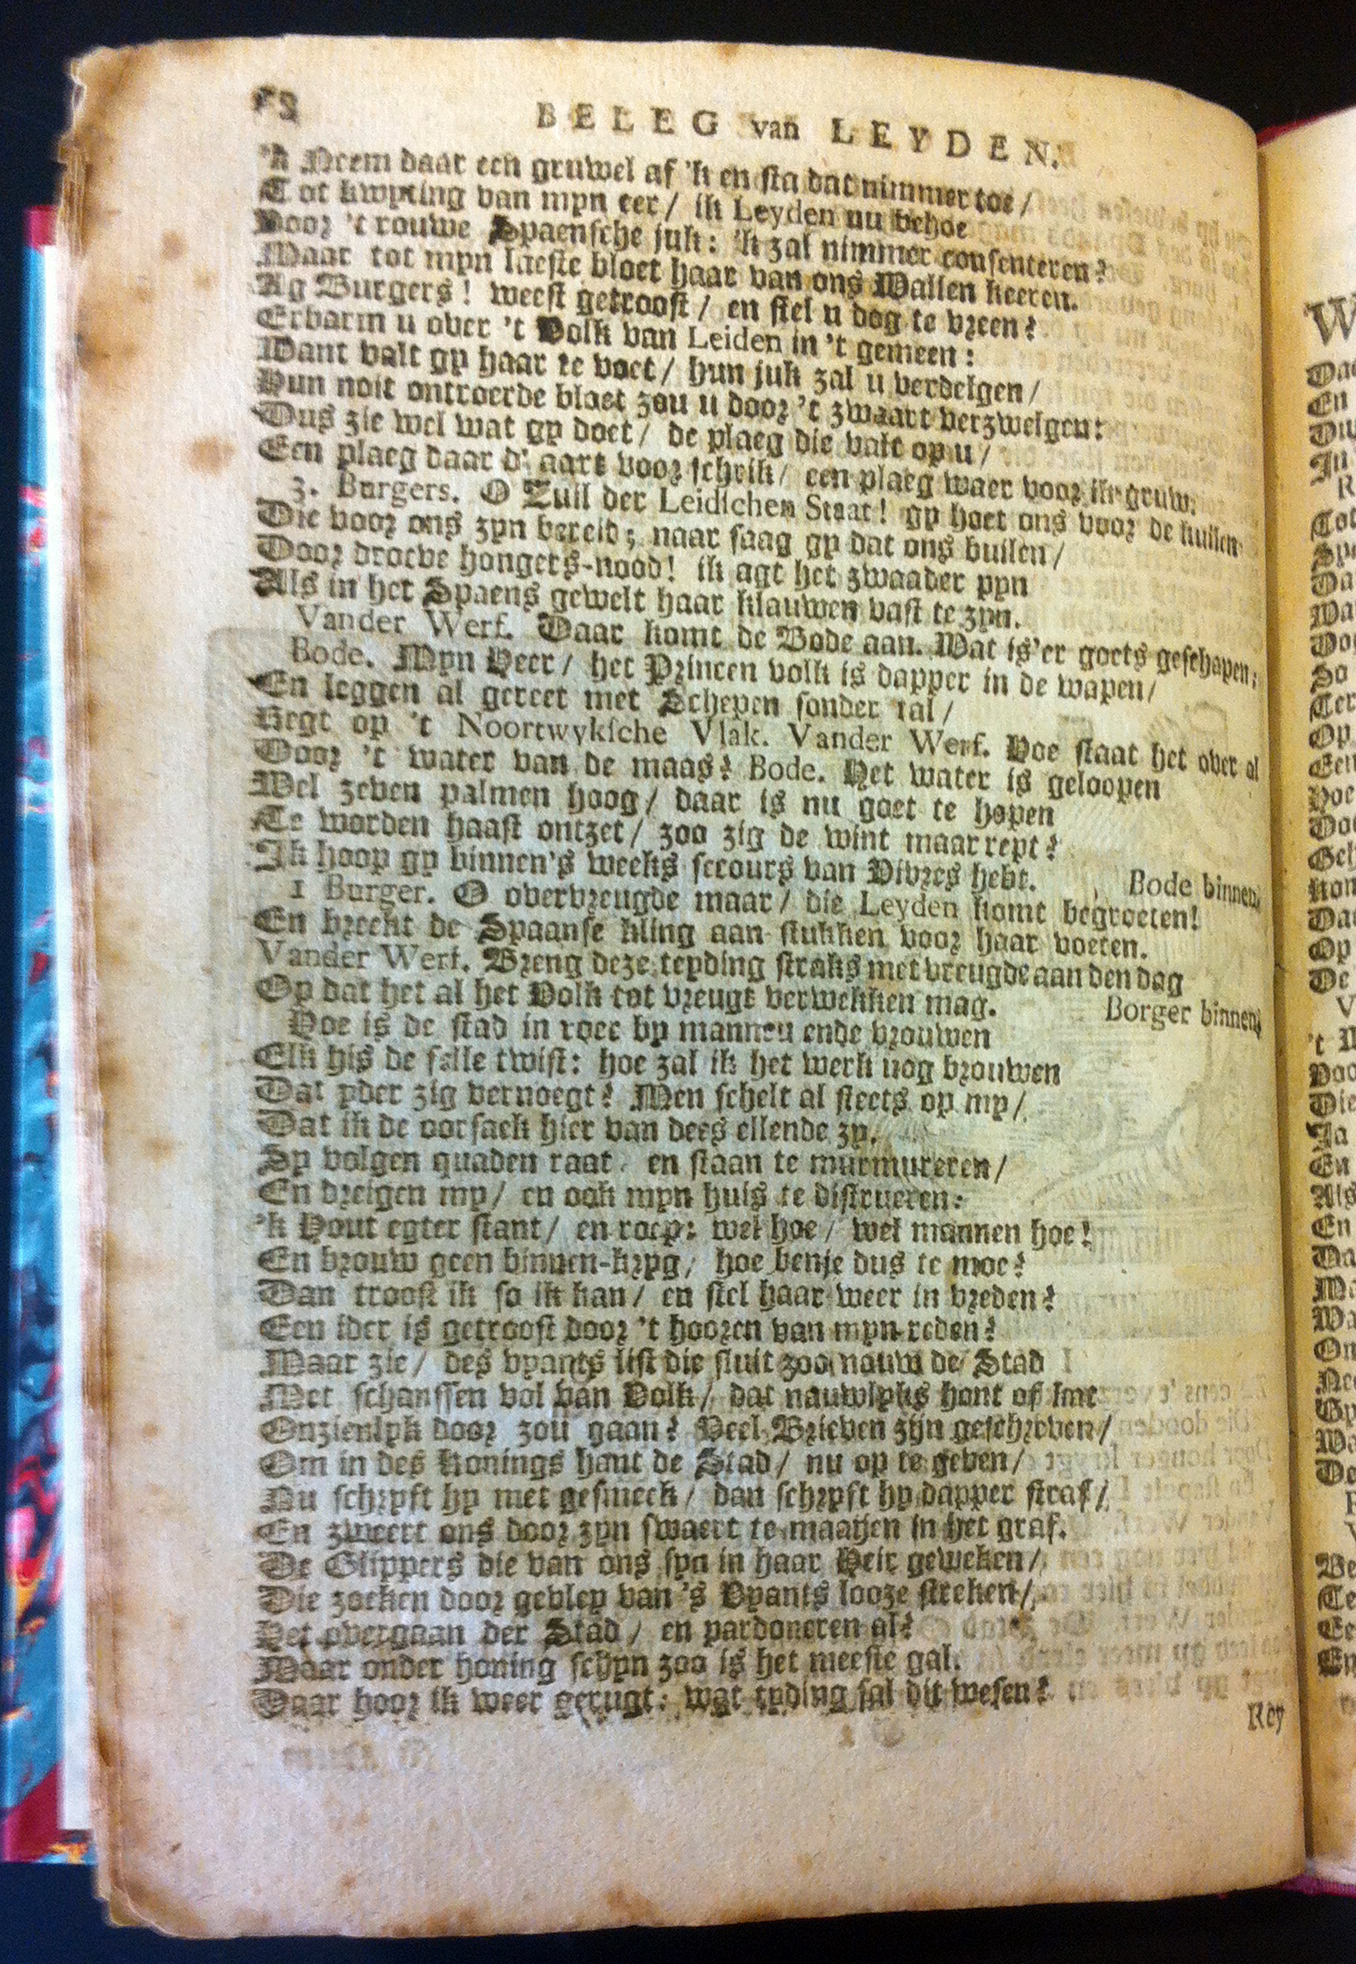 BELEG van LEYDEN.
'k Neem daar een gruwel af 'k en sta dat nimmer toe /
Tot kwyting van myn eer / ik Leyden nu behoe
Voor 't rouwe Spaensche juk: 'k zal nimmer consenteren?
Maar tot myn laeste bloet haar van ons Wallen keeren.
Ag Burgers! weest getroost / en stel u dog te vreen?
Erbarm u over 't Volk van Leiden in 't gemeen:
Want valt gy haar te voet / hun juk zal u verdelgen /
Hun noit ontroerde bloet zou u door 't zwaart verzwelgen:
Dus zie wel wat gy doet / de plaeg die valt op u /
Een plaeg daar d' aart voor schrik / een plaeg waer voor ik gruw.
3. Burgers. O Zuil der Leidschen Staat! gy hoet ons voor de kuilen
Die voor ons zyn bereid; naar saag gy dat ons builen /
Door droeve hongers-nood! ik agt het zwaader pyn
Als in het Spaens gewelt haar klauwen vast te zyn.
Vander Werf. Daar komt de Bode aan. Wat is'er goets geschapen;
Bode. Myn Heer / het Princen volk is dapper in de wapen /
En leggen al gereet met Schepen sonder tal /
Regt op 't Noortwyksche Vlak. Vander Werf. Hoe staat het over al
Door 't water van de maas? Bode. Het water is geloopen
Wel zeven palmen hoog / daar is nu goet te hopen
Te worden haast ontzet / zoo zig de wint maar rept?
Ik hoop gy binnen's weeks secours van Vivres hebt. Bode binnen.
1 Burger. O overvreugde maar / die Leyden komt begroeten!
En breekt de Spaanse kling aan stukken voor haar voeten.
Vander Werf. Breng deze teyding straks met vreugde aan den dag
Op dat het al het Volk tot vreugt verwekken mag. Borger binnen.
Hoe is de stad in roer by mannen ende vrouwen
Elk his de felle twist: hoe zal ik het werk nog brouwen
Dat yder zig vernoegt? Men schelt al steets op my /
Dat ik de oorsaek hier van dees ellende zy.
Sy volgen quaden raat en staan te murmureren /
En dreigen my / en ook myn huis te distrueren:
'k Hout egter stant / en roep: wel hoe / wel mannen hoe!
En brouw geen binnen-kryg / hoe benje dus te moe?
Dan troost ik so ik kan / en stel haar weer in vreden?
Een ider is getroost door 't hooren van myn reden?
Maar zie / des vyants list die sluit zoo nauw de Stad
Met schanssen vol van Volk / dat nauwlyks hont of kat
Onzienlyk door zou gaan? Veel Brieven zijn geschreven /
Om in des Konings hant de Stad / nu op te geven /
Nu schryft hy met gesmeek / dan schryft hy dapper straf /
En zweert ons door zyn swaert te maayen in het graf.
De Glippers die van ons syn in haar Heir geweken /
Die zoeken door gevley van 's Vyants looze streken /
Het overgaan der Stad / en pardoneren al?
Maar onder honing schyn zoo is het meeste gal.
Daar hoor ik weer gerugt: wat tyding sal dit wesen?
Rey